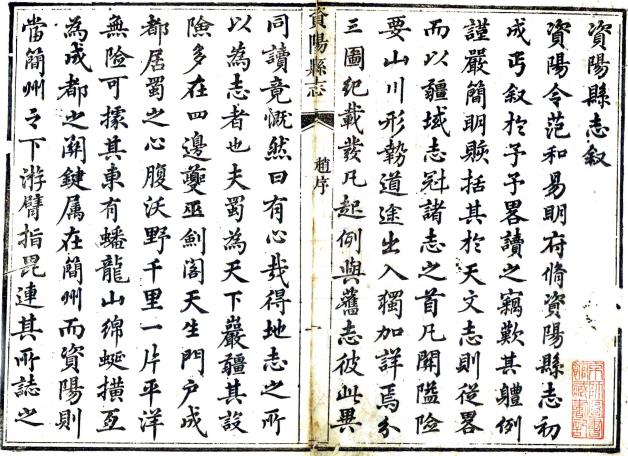 資陽縣志叙
資陽令范和易明府脩資陽縣志初
成丐叙於予予畧讀之竊歎其體例
謹嚴簡明賅括其於天文志則從畧
而以疆域志冠諸志之首凡關隘險
要山川形勢道途出入獨加詳焉分
三圖紀載發凡起例與舊志彼此異
資陽縣志
趙序
同讀竟慨然曰有心哉得地志之所
以為志者也夫蜀為天下巖疆其設
險多在四邊夔巫劍閣天生門戶成
都居蜀之心腹沃野千里一片平洋
無險可據其東有蟠龍山綿蜒橫亙
為成都之關鍵属在簡州而資陽則
當簡州之下游臂指毘連其所誌之